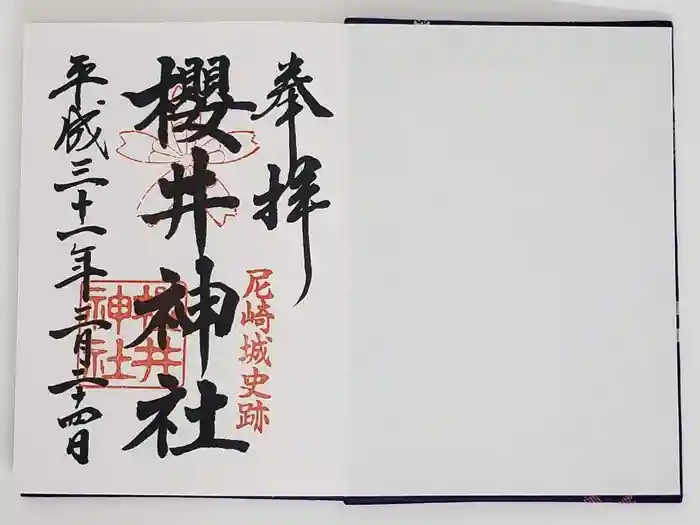 奉拝
尼崎城史跡
櫻井神社
櫻井神社
平成三十一年三月二十四日